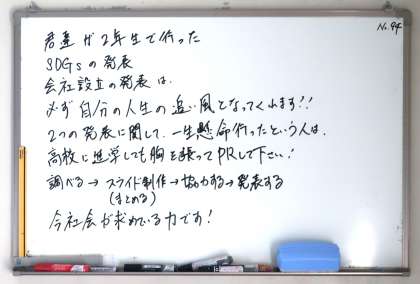 No.94
君達が2年生で行った
SDGsの発表
会社設立の発表は、
必ず自分の人生の追い風となってくれます!!
2つの発表に関して、一生懸命行ったという人は、
高校に進学しても胸を張ってPRして下さい!
調べる→スライド制作→協力する→発表する
(まとめる)
今社会が求めている力です!